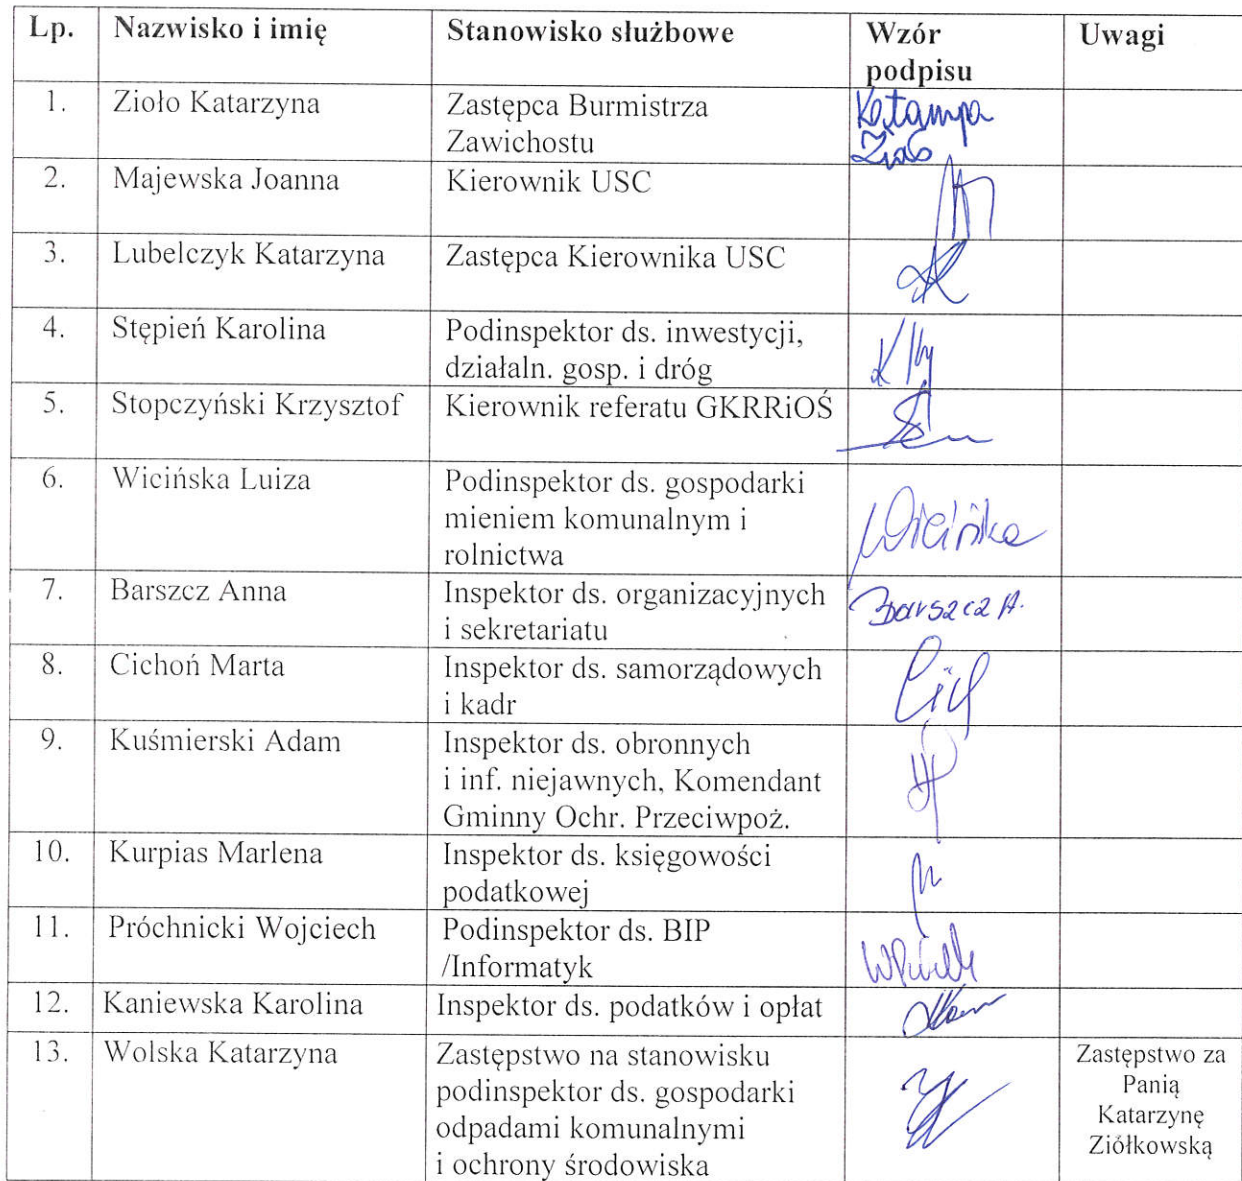 Lp. Nazwisko i imię Stanowisko służbowe Wzór Uwagi
podpisu
1. Zioło Katarzyna Zastępca Burmistrza Katarzyna
Zawichostu Zioło
2. Majewska Joanna Kierownik USC
3. Lubelczyk Katarzyna Zastępca Kierownika USC
4. Stępień Karolina Podinspektor ds. inwestycji,
działaln. gosp. i dróg
5. Stopczyński Krzysztof Kierownik referatu GKRRiOŚ
6. Wicińska Luiza Podinspektor ds. gospodarki
mieniem komunalnym i Wicińska
rolnictwa
7. Barszcz Anna Inspektor ds. organizacyjnych Barszcz A.
i sekretariatu
8. Cichoń Marta Inspektor ds. samorządowych
i kadr
9. Kuśmierski Adam Inspektor ds. obronnych
i inf. niejawnych, Komendant
Gminny Ochr. Przeciwpoż.
10. Kurpias Marlena Inspektor ds. księgowości
podatkowej
11. Próchnicki Wojciech Podinspektor ds. BIP
/Informatyk
12. Kaniewska Karolina Inspektor ds. podatków i opłat
13. Wolska Katarzyna Zastępstwo na stanowisku Zastępstwo za
podinspektor ds. gospodarki Panią
odpadami komunalnymi Katarzynę
i ochrony środowiska Ziółkowską